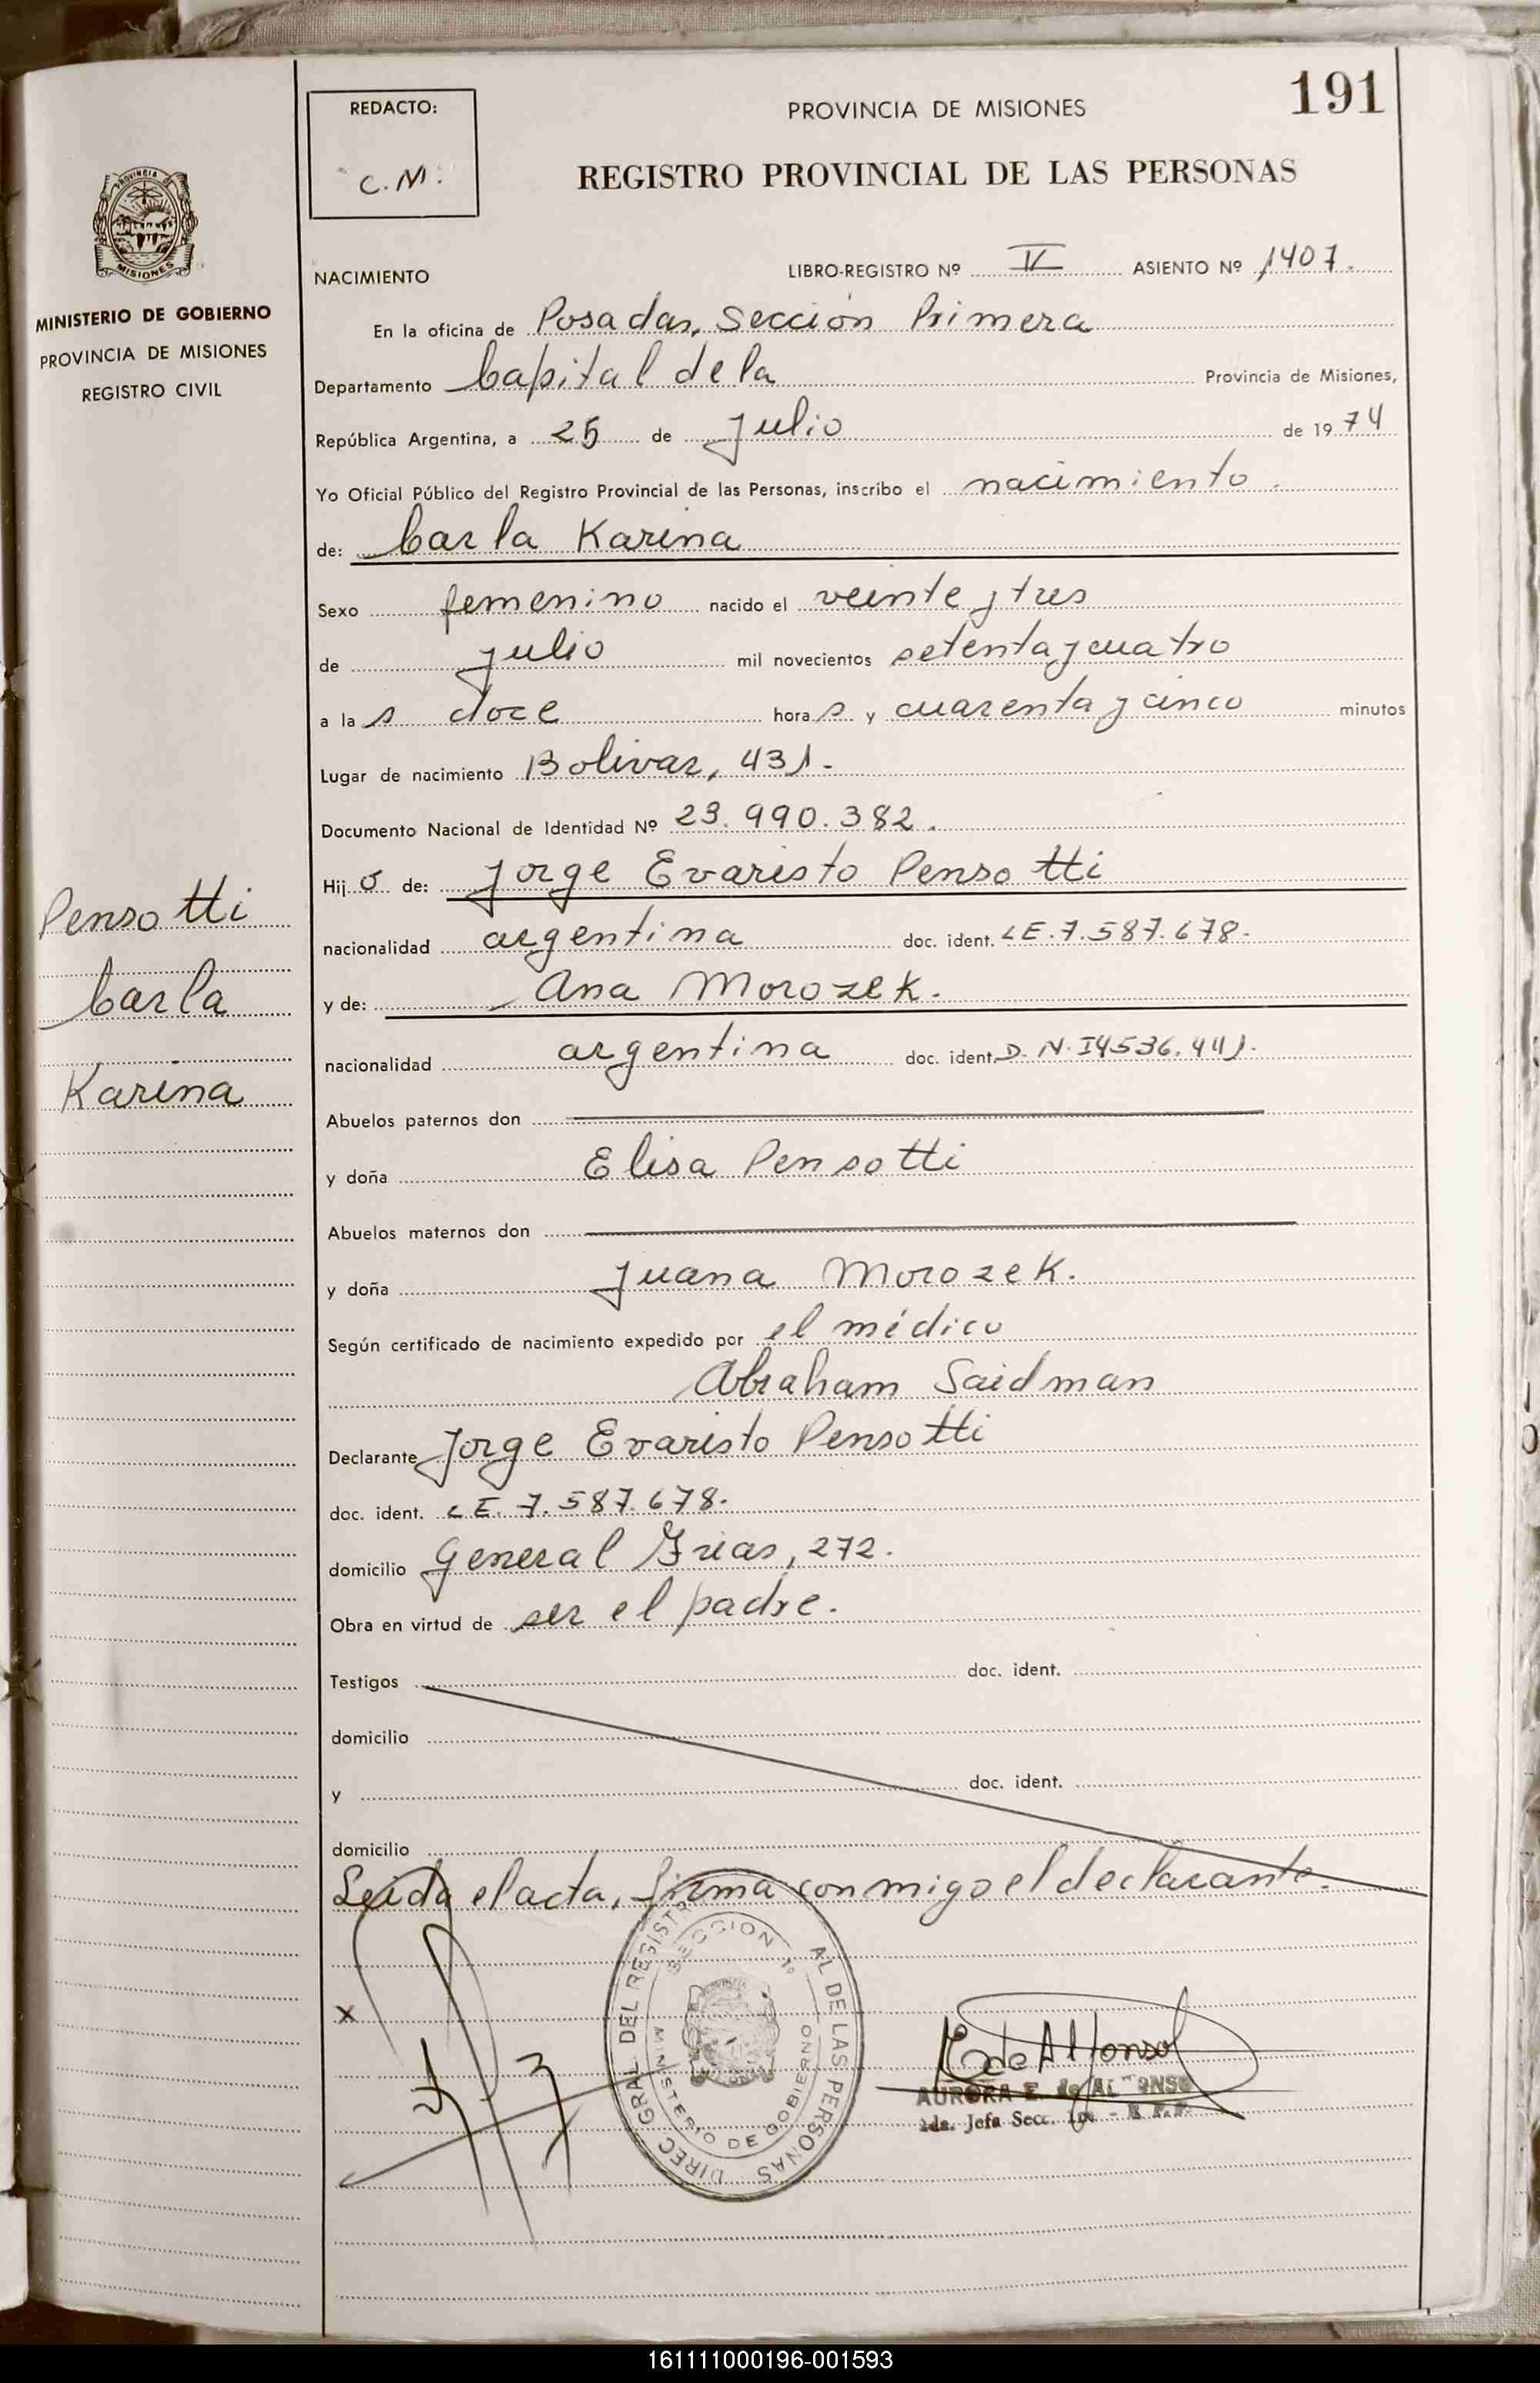 191
REDACTO:
C.M.
PROVINCIA DE MISIONES
REGISTRO PROVINCIAL DE LAS PERSONAS
MISIONES
MINISTERIO DE GOBIERNO
PROVINCIA DE MISIONES
REGISTRO CIVIL
NACIMIENTO LIBRO-REGISTRO Nº IV ASIENTO Nº 1407.
En la oficina de Posadas, Sección Primera
Departamento Capital de la Provincia de Misiones,
República Argentina, a 25 de Julio de 1974
Yo Oficial Público del Registro Provincial de las Personas, inscribo el nacimiento.
de: Carla Karina
Sexo femenino nacido el veinte y tres
de julio mil novecientos setenta y cuatro
a las doce horas y cuarenta y cinco minutos
Lugar de nacimiento Bolivar, 431.-
Documento Nacional de Identidad Nº 23.990.382.
Hija de: Jorge Evaristo Pensotti
nacionalidad argentina doc. ident. LE.7.587.678-
y de: Ana Morozek.
nacionalidad argentina doc. ident. D.N.I 4536.441.
Abuelos paternos don
y doña Elisa Pensotti
Abuelos maternos don
y doña Juana Morozek.
Según certificado de nacimiento expedido por el médico
Abraham Saidman
Declarante Jorge Evaristo Pensotti
doc. ident. LE. 7.587.678.
domicilio General Frias, 272.
Obra en virtud de ser el padre.
Testigos doc. ident.
domicilio
y doc. ident.
domicilio
Leida el acta, firma conmigo el declarante.
Pensotti
Carla
Karina
x
DIREC GRAL. DEL REGISTR AL DE LAS PERSONAS
SECCION 1º
MINISTERIO DE GOBIERNO
E de Alfonso
AURORA E. de ALFONSO
2da. Jefa Secc. 1ra. - R.P.P.
161111000196-001593